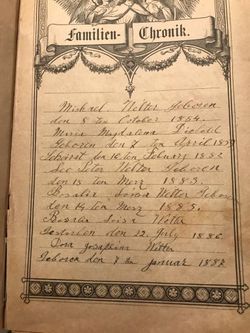 Familien- Chronik.
Michael Welter Geboren
den 8 ten October 1854.
Maria Magdalena
Geboren den 7 ten April
den 10 ten Febuary
Leo Peter Welter Geboren
den 13 ten Merz 1883.
Rosalia Welter Gebor
den 14 ten Merz 1885.
Rosalia
Gestorben den 12 July 1886
Dora Josephine Welter
Geboren den 7 ten Januar 1887